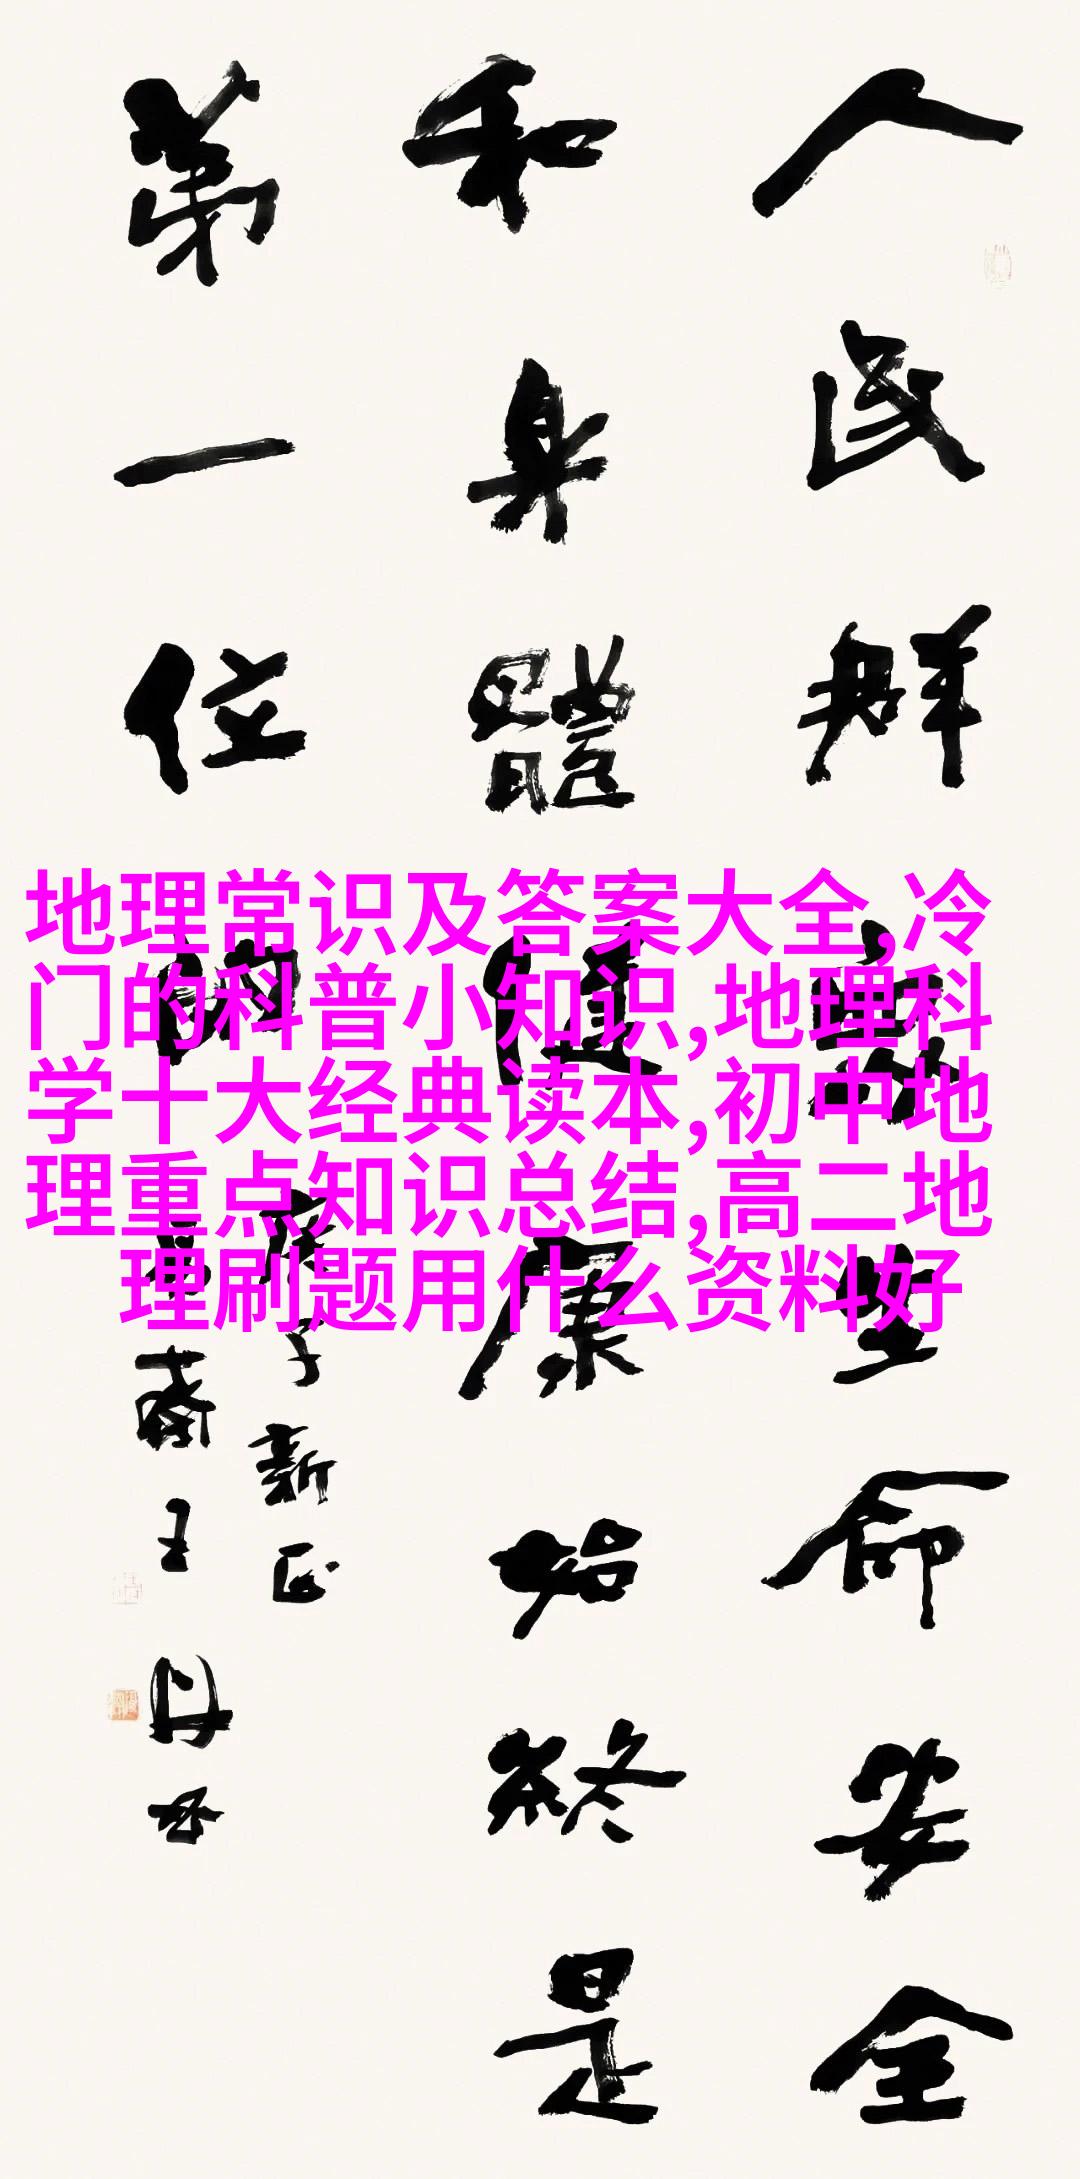 人民群衆生命安全
和身體健康始終是
第一位的
庚子新正
王丹
地理常识及答案大全,冷
门的科普小知识,地理科
学十大经典读本,初中地
理重点知识总结,高二地
理刷题用什么资料好